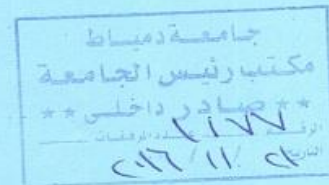 جامعة دمياط
مكتب رئيس الجامعة
** صادر داخلي **
الرقم عدد المرفقات
التاريخ / ١١ / ٢٠١٦